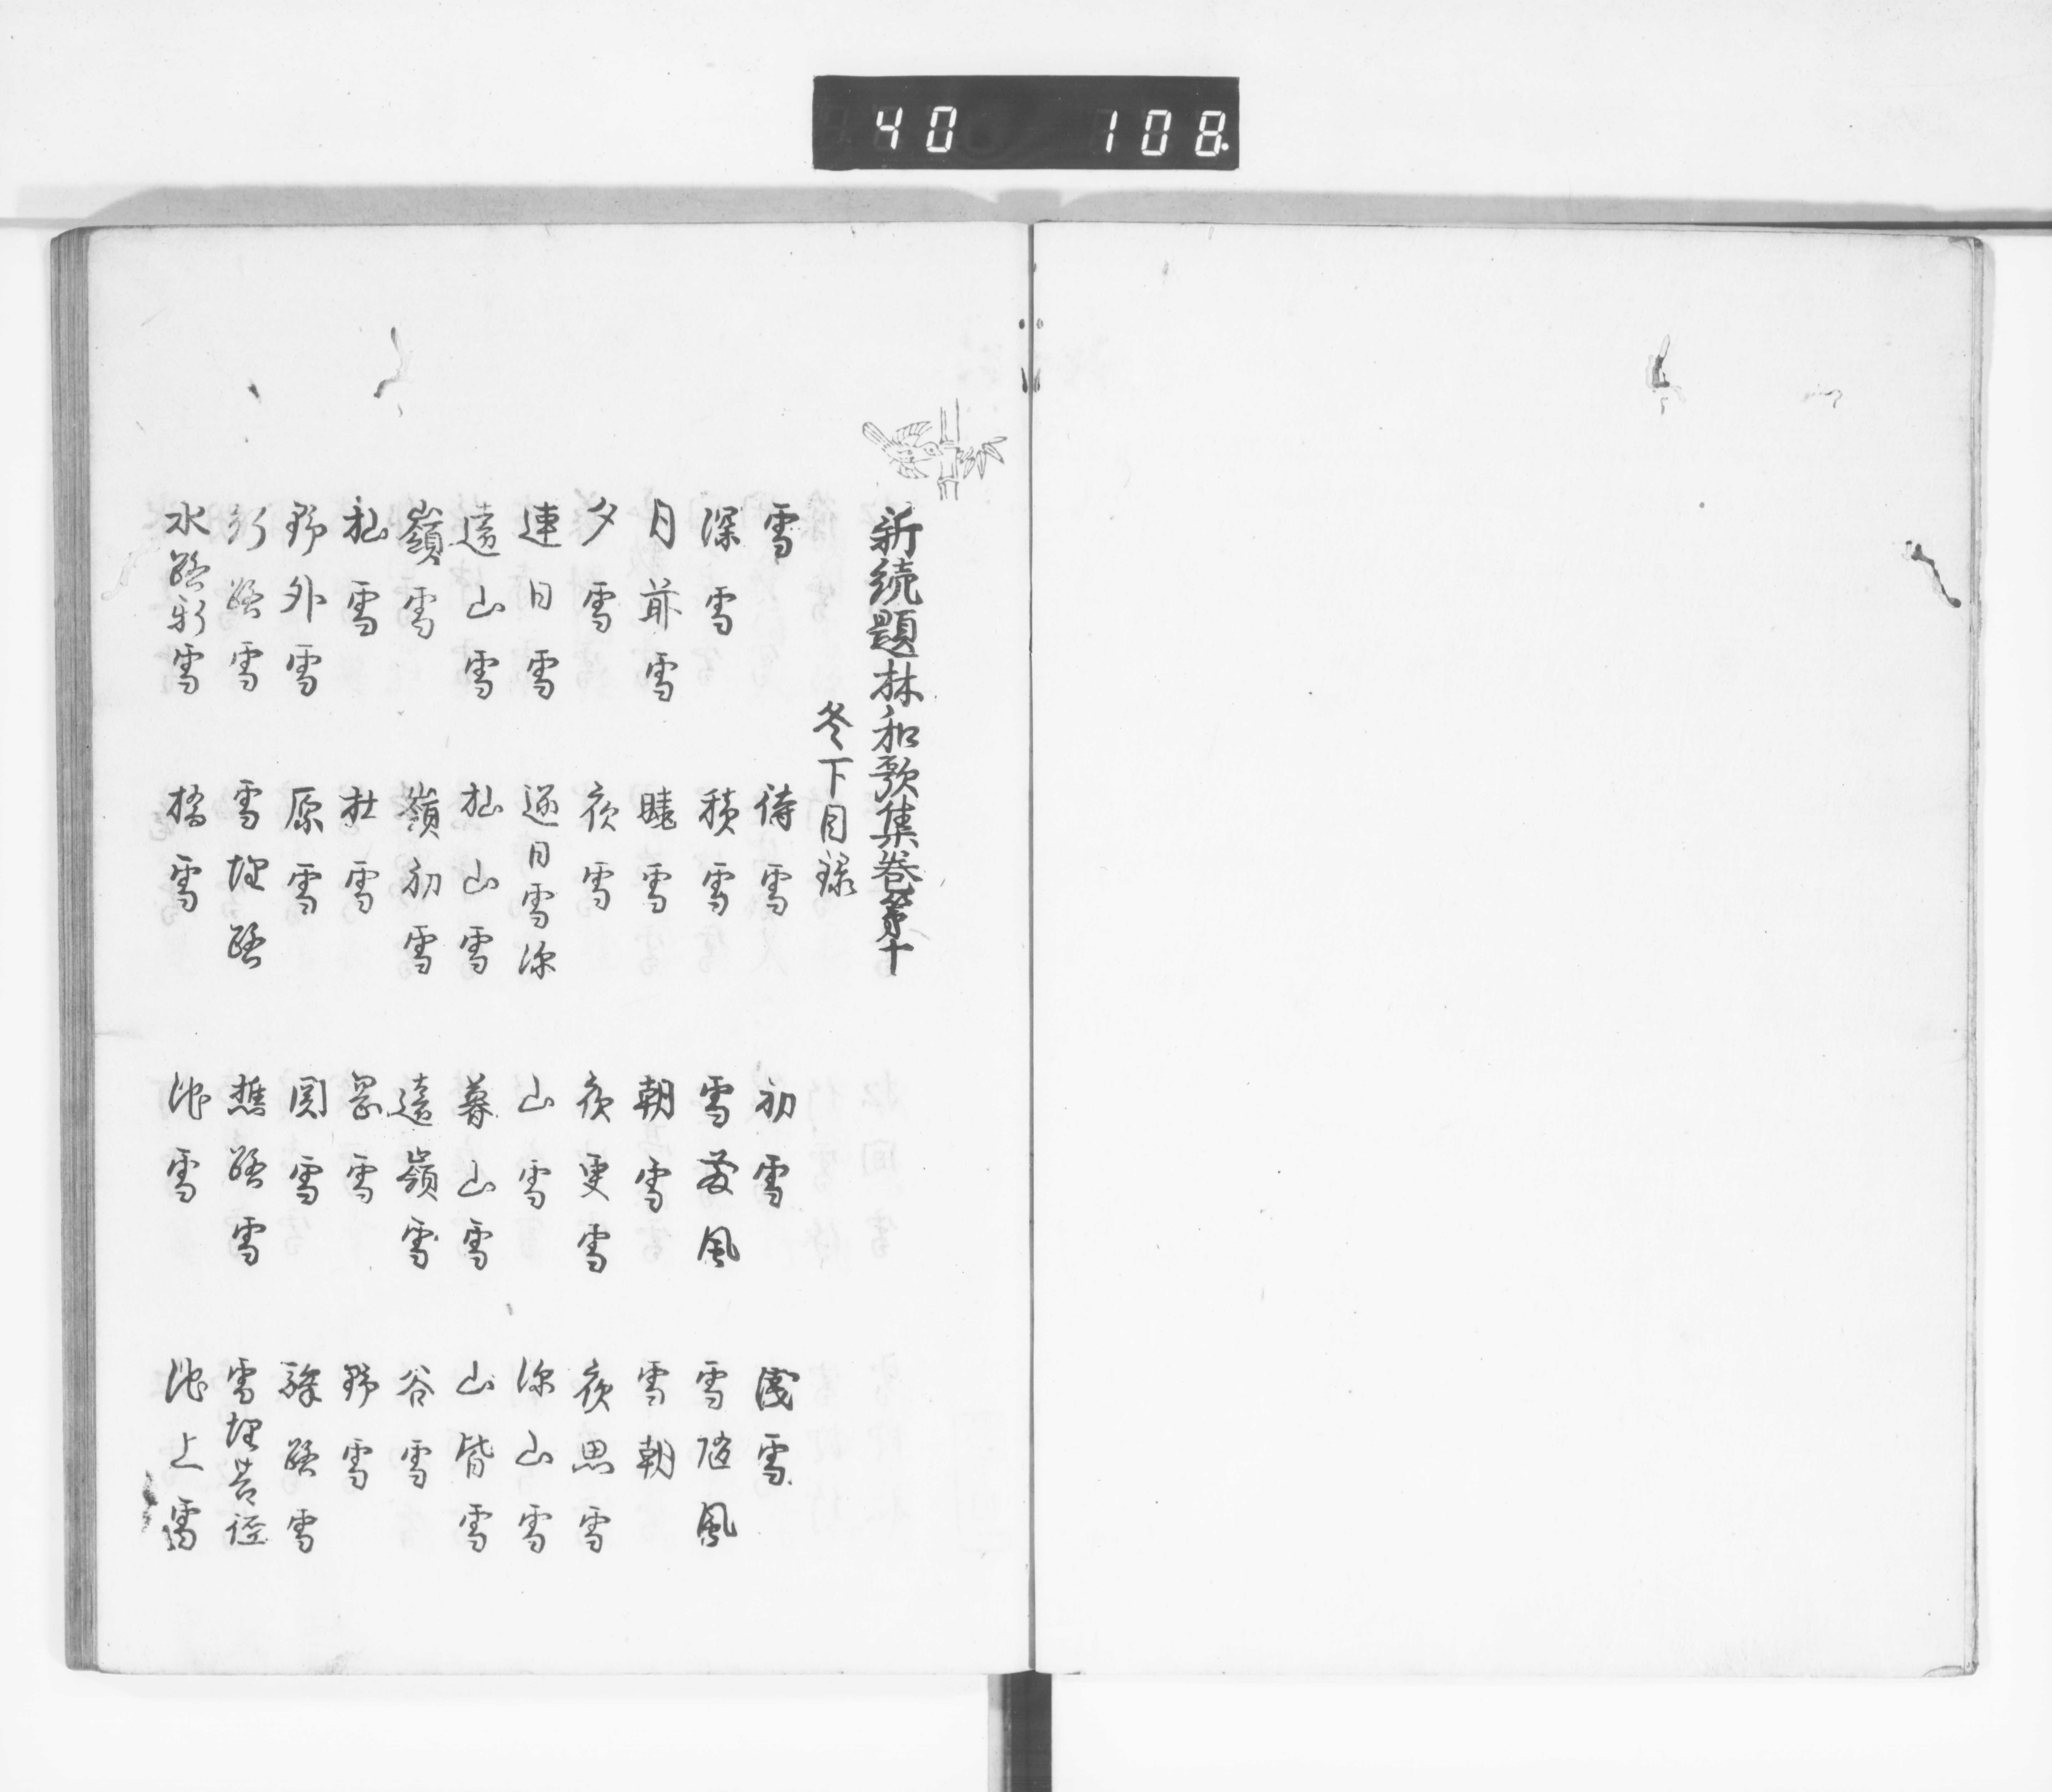 40 108
新続題林和歌集巻第十
冬下目録
雪 待雪 初雪 浅雪
深雪 積雪 雪散風 雪随風
月前雪 暁雪 朝雪 雪朝
夕雪 夜雪 夜更雪 夜思雪
連日雪 逐日雪深 山雪 深山雪
遠山雪 杣山雪 暮山雪 山皆雪
嶺雪 嶺初雪 遠嶺雪 谷雪
杣雪 杜雪 岡雪 野雪
野外雪 原雪 関雪 驛路雪
行路雪 雪埋路 樵路雪 雪埋苔径
水路新雪 橋雪 池雪 池上雪